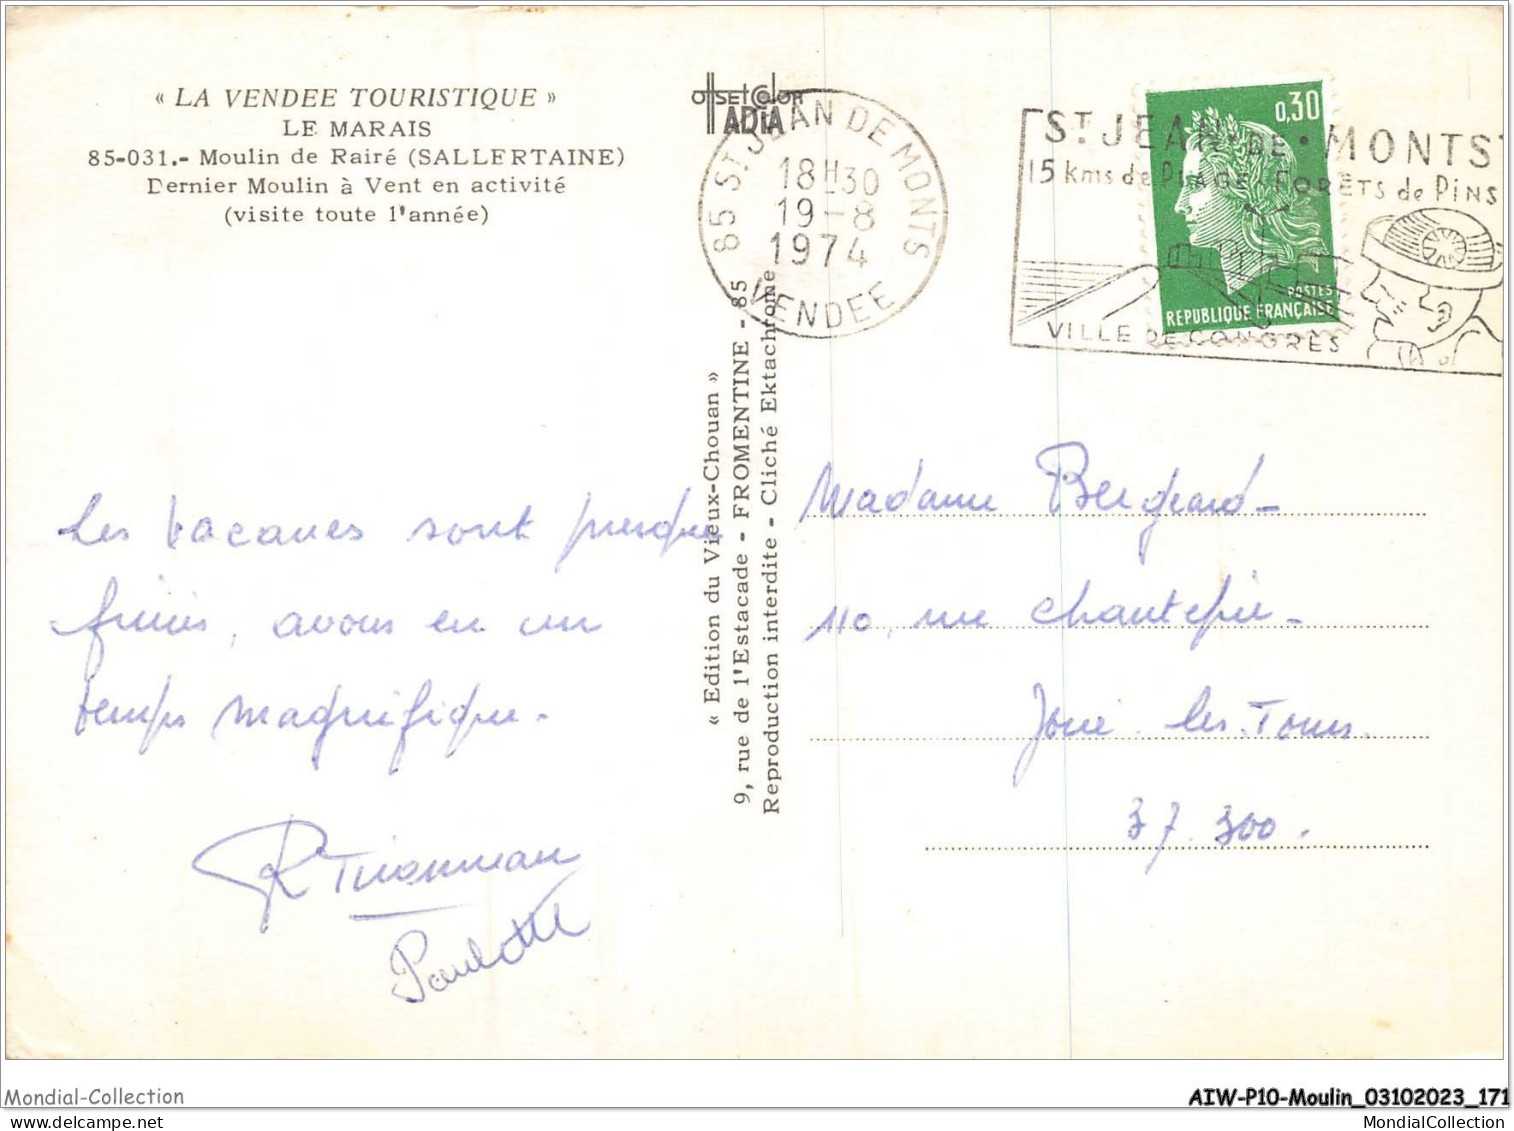 « LA VENDEE TOURISTIQUE »
LE MARAIS
85-031.- Moulin de Rairé (SALLERTAINE)
Dernier Moulin à Vent en activité
(visite toute l'année)
offset color
ADIA
85 ST JEAN DE MONTS
18H30
19-8
1974
VENDEE
ST. JEAN DE • MONTS
15 kms de PLAGE FORÊTS de PINS
VILLE DE CONGRÈS
0,30
POSTES
REPUBLIQUE FRANÇAISE
« Edition du Vieux-Chouan »
9, rue de l'Estacade - FROMENTINE - 85
Reproduction interdite - Cliché Ektachrome
Les vacances sont presque
finies, avons eu un
temps magnifique.
Paulette
Madame Bergeard-
110, rue Chantepie-
Joué-les-Tours.
37 300.
Mondial-Collection
AIW-P10-Moulin_03102023_171
MondialCollection